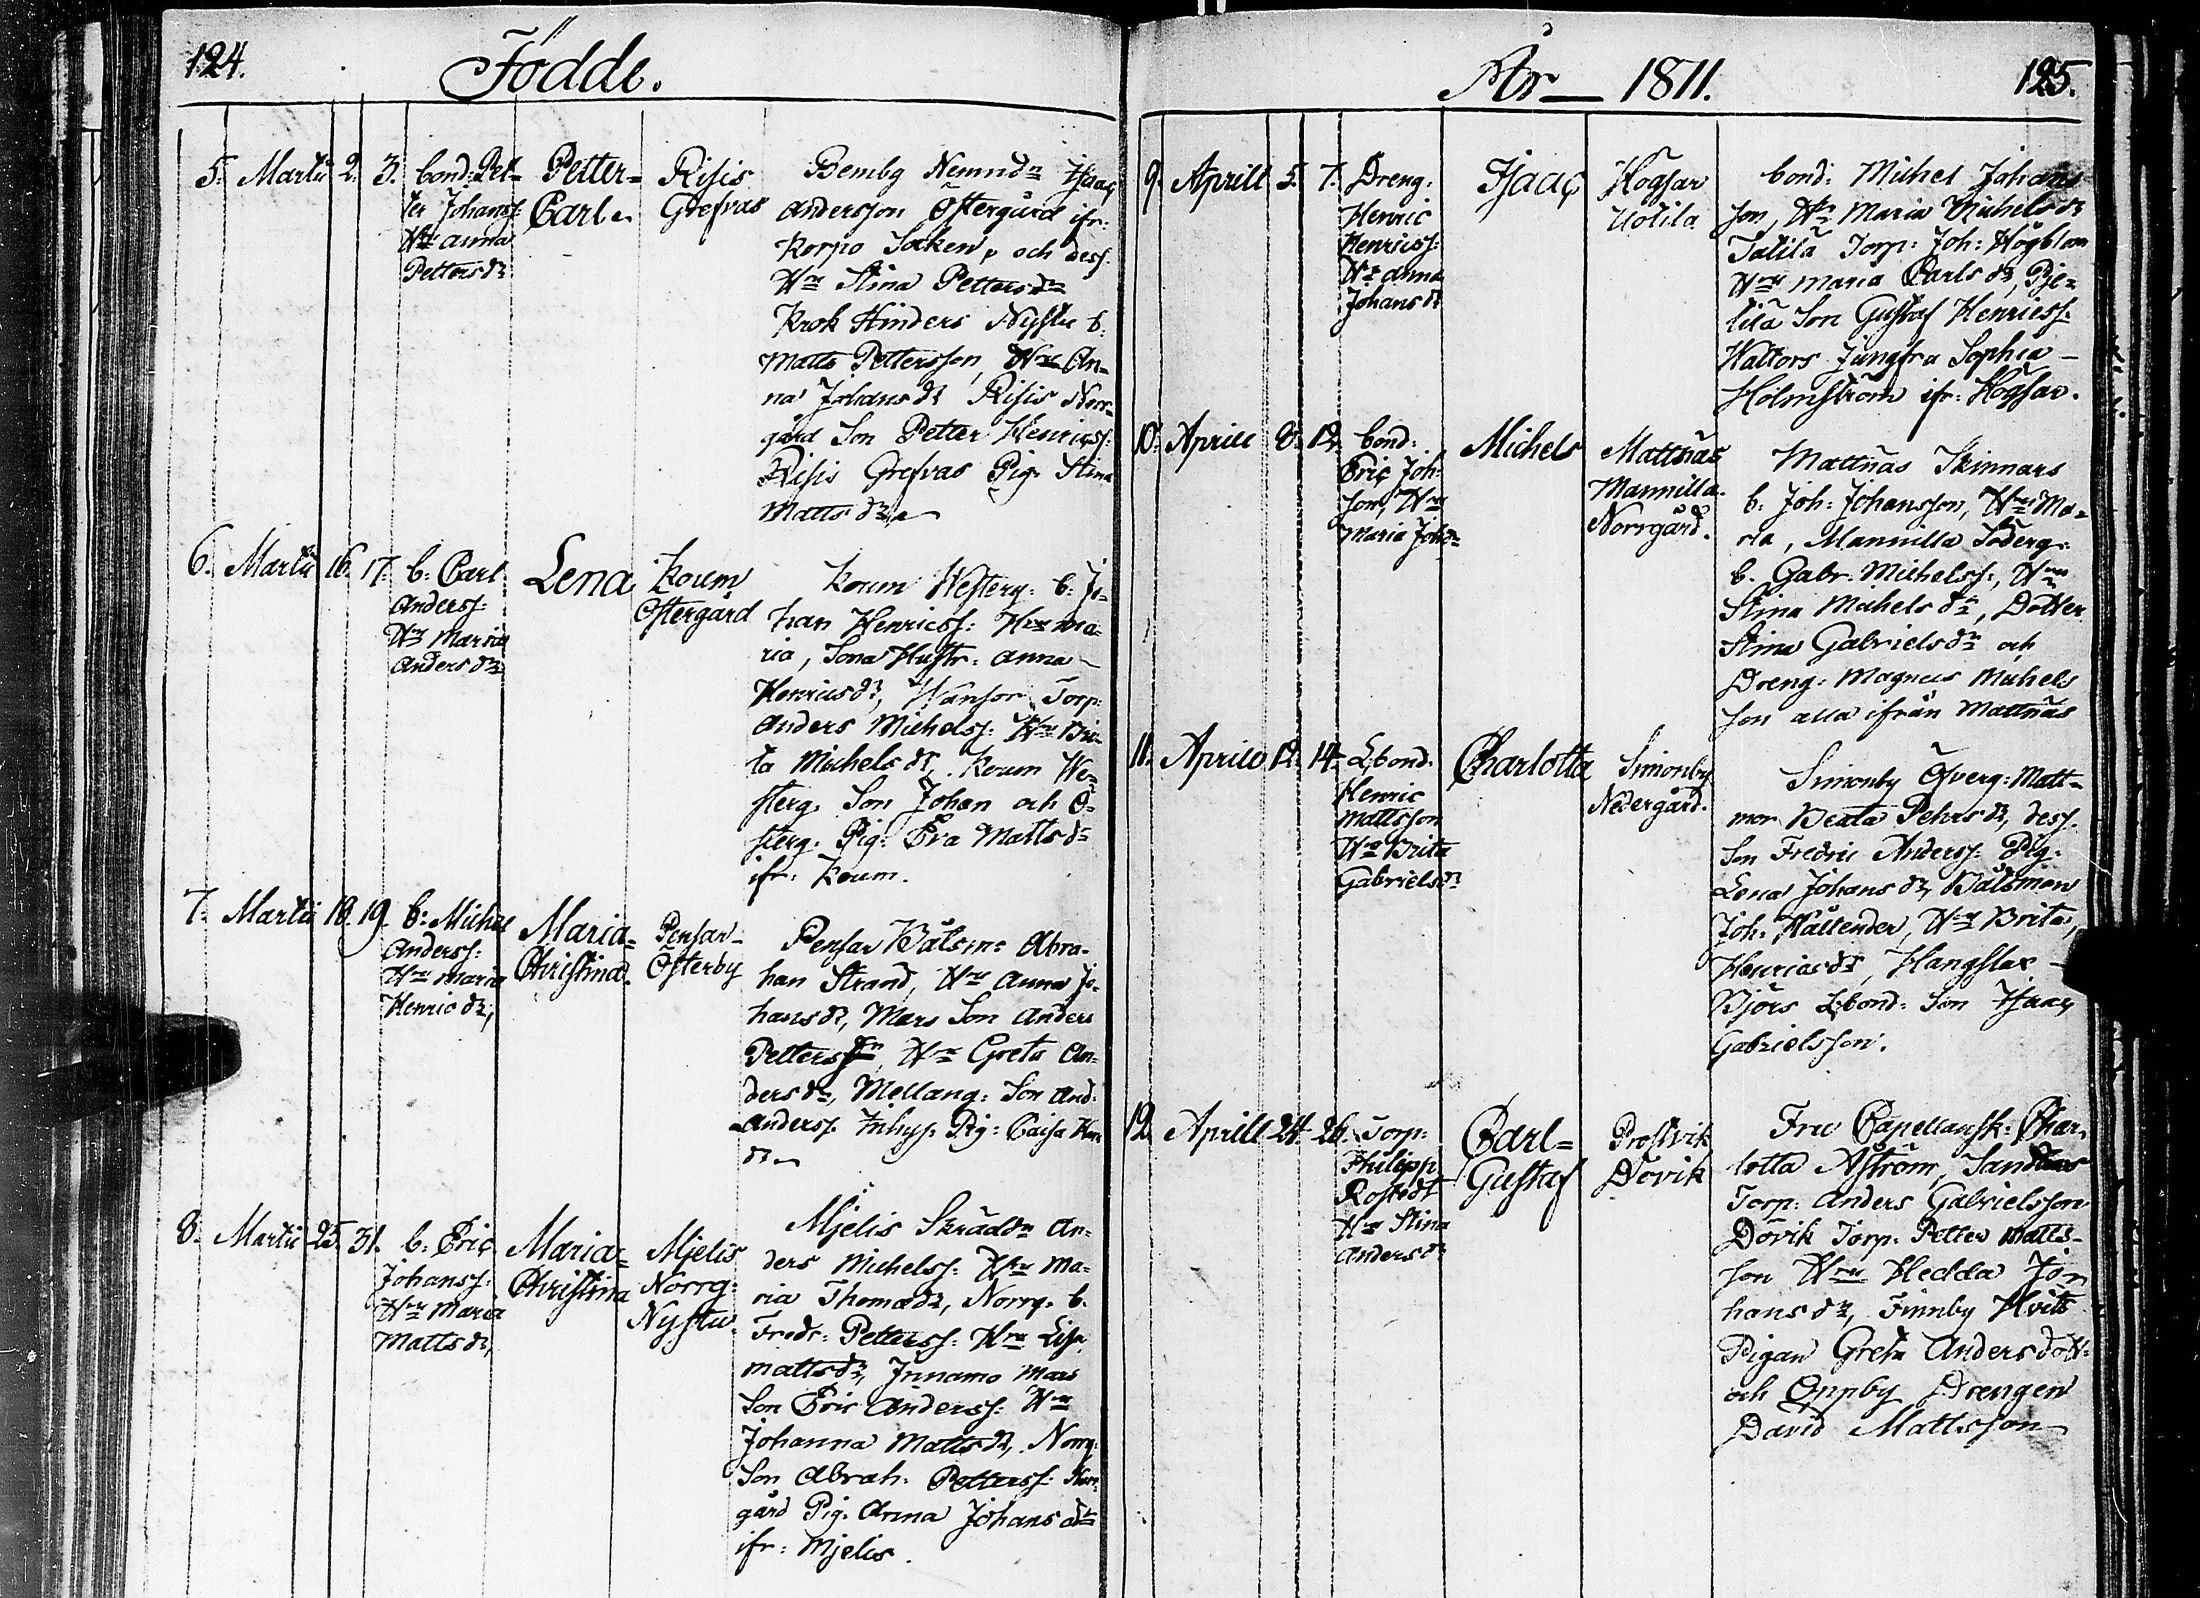 124.
Födde.
5. Martii 2. 3. bond: Pet-
ter Johanss:
Hu anna
Petters dr
Petter=
Carl.
Risis
Grefvas
Bemby Nemnd: Isaac
Andersson Östergård ifr:
Korpo Socken, och dess
Hu Stina Petters dr
Krok Hinders Nystu b.
Matts Pettersson, Hu An-
na Johans dr Risis Norr-
gård Son Petter Henricss:
Risis Grefvas Pig. Stina
Matts dr
6. Martii 16. 17. b: Carl
Anderss:
Hu Maria
Anders dr
Lena
Koum
Östergård
Koum Westerg: b: Jo-
han Henricss: Hu Ma-
ria, Sona Hustr: Anna
Henrics dr, Wansor Torp:
Anders Michelss: Hu Bri-
ta Michels dr, Koum We-
sterg. Son Johan och Ö-
sterg. Pig: Eva Matts dr
ifr: Koum.
7. Martii 18. 19. b: Michel
Anderss:
Hu Maria
Henrics dr,
Maria=
Christina.
Pensar-
Österby
Pensar Båtsm: Abra-
han Strand, Hu Anna Jo-
hans dr, Mars Son Anders
Petters Hu Greta An-
ders dr, Mellang: Son And:
Anderss. Inhys. Pig: Caisa
dr
8. Martii 25. 31. b. Eric
Johanss:
Hu Maria
Matts dr,
Maria=
Christina
Mjelis
Norrg:
Nystu.
Mjelis Skrädd: An-
ders Michelss: Hu Ma-
ria Thomæ dr, Norrg. b.
Fredr: Petterss: Hu Lisa
Matts dr, Innamo Mars
Son Eric Anderss: Hu
Johanna Matts dr, Norrg:
Son Abrah: Petterss: Norr-
gård Pig. Anna Johans dr
ifr: Mjelis.
År 1811.
125.
9. Aprill 5. 7. Dreng:
Henric
Henricss:
Hu anna
Johans dr
Isaac
Högsar
Uotila
bond: Michel Johans
son, Hu Maria Michels dr
Talila Torp: Joh: Högblom
Hu Maria Carls dr, Pje-
tilä Son Gustaf Henricss:
Wattors Jungfru Sophia
Holmström ifr: Högsar.
10. Aprill 8. 12. bond:
Eric Joh:
son, Hu
Maria Joh: dr
Michels
Mattnäs
Mannilla
Norrgård.
Mattnäs Skinnars
b. Joh: Johansson, Hu Ma-
ria, Mannilla Söderg:
b. Gabr: Michelss:, Hu
Stina Michels dr, Dotter
Stina Gabriels dr och
Dreng: Magnus Michels
son alla ifrån Mattnäs
11. Aprill 12. 14. Lbond:
Henric
Mattsson
Hu Brita
Gabriels dr
Charlotta
Simonby
Nedergård.
Simonby Öfverg: Matt-
mor Beata Pehrs dr, dess
Son Fredric Anderss: Pig:
Lena Johans dr, Båtsman
Joh: Hållender, Hu Brita
Henrics dr, Hangslax
Björs Lbond: Son Isaac
Gabrielsson.
12. Aprill 24. 26. Torp:
Philipp
Rostedt
Hu Stina
Anders dr
Carl=
Gustaf
Prostvik
Dövik
Fru Capellansk: Char-
lotta Aström,
Torp: Anders Gabrielsson
Dövik Torp: Petter Matts-
son Hu Hedda Jo-
hans dr, Finnby Hvits
Pigan Greta Anders dott:
och Önnby Drengen
David Mattsson